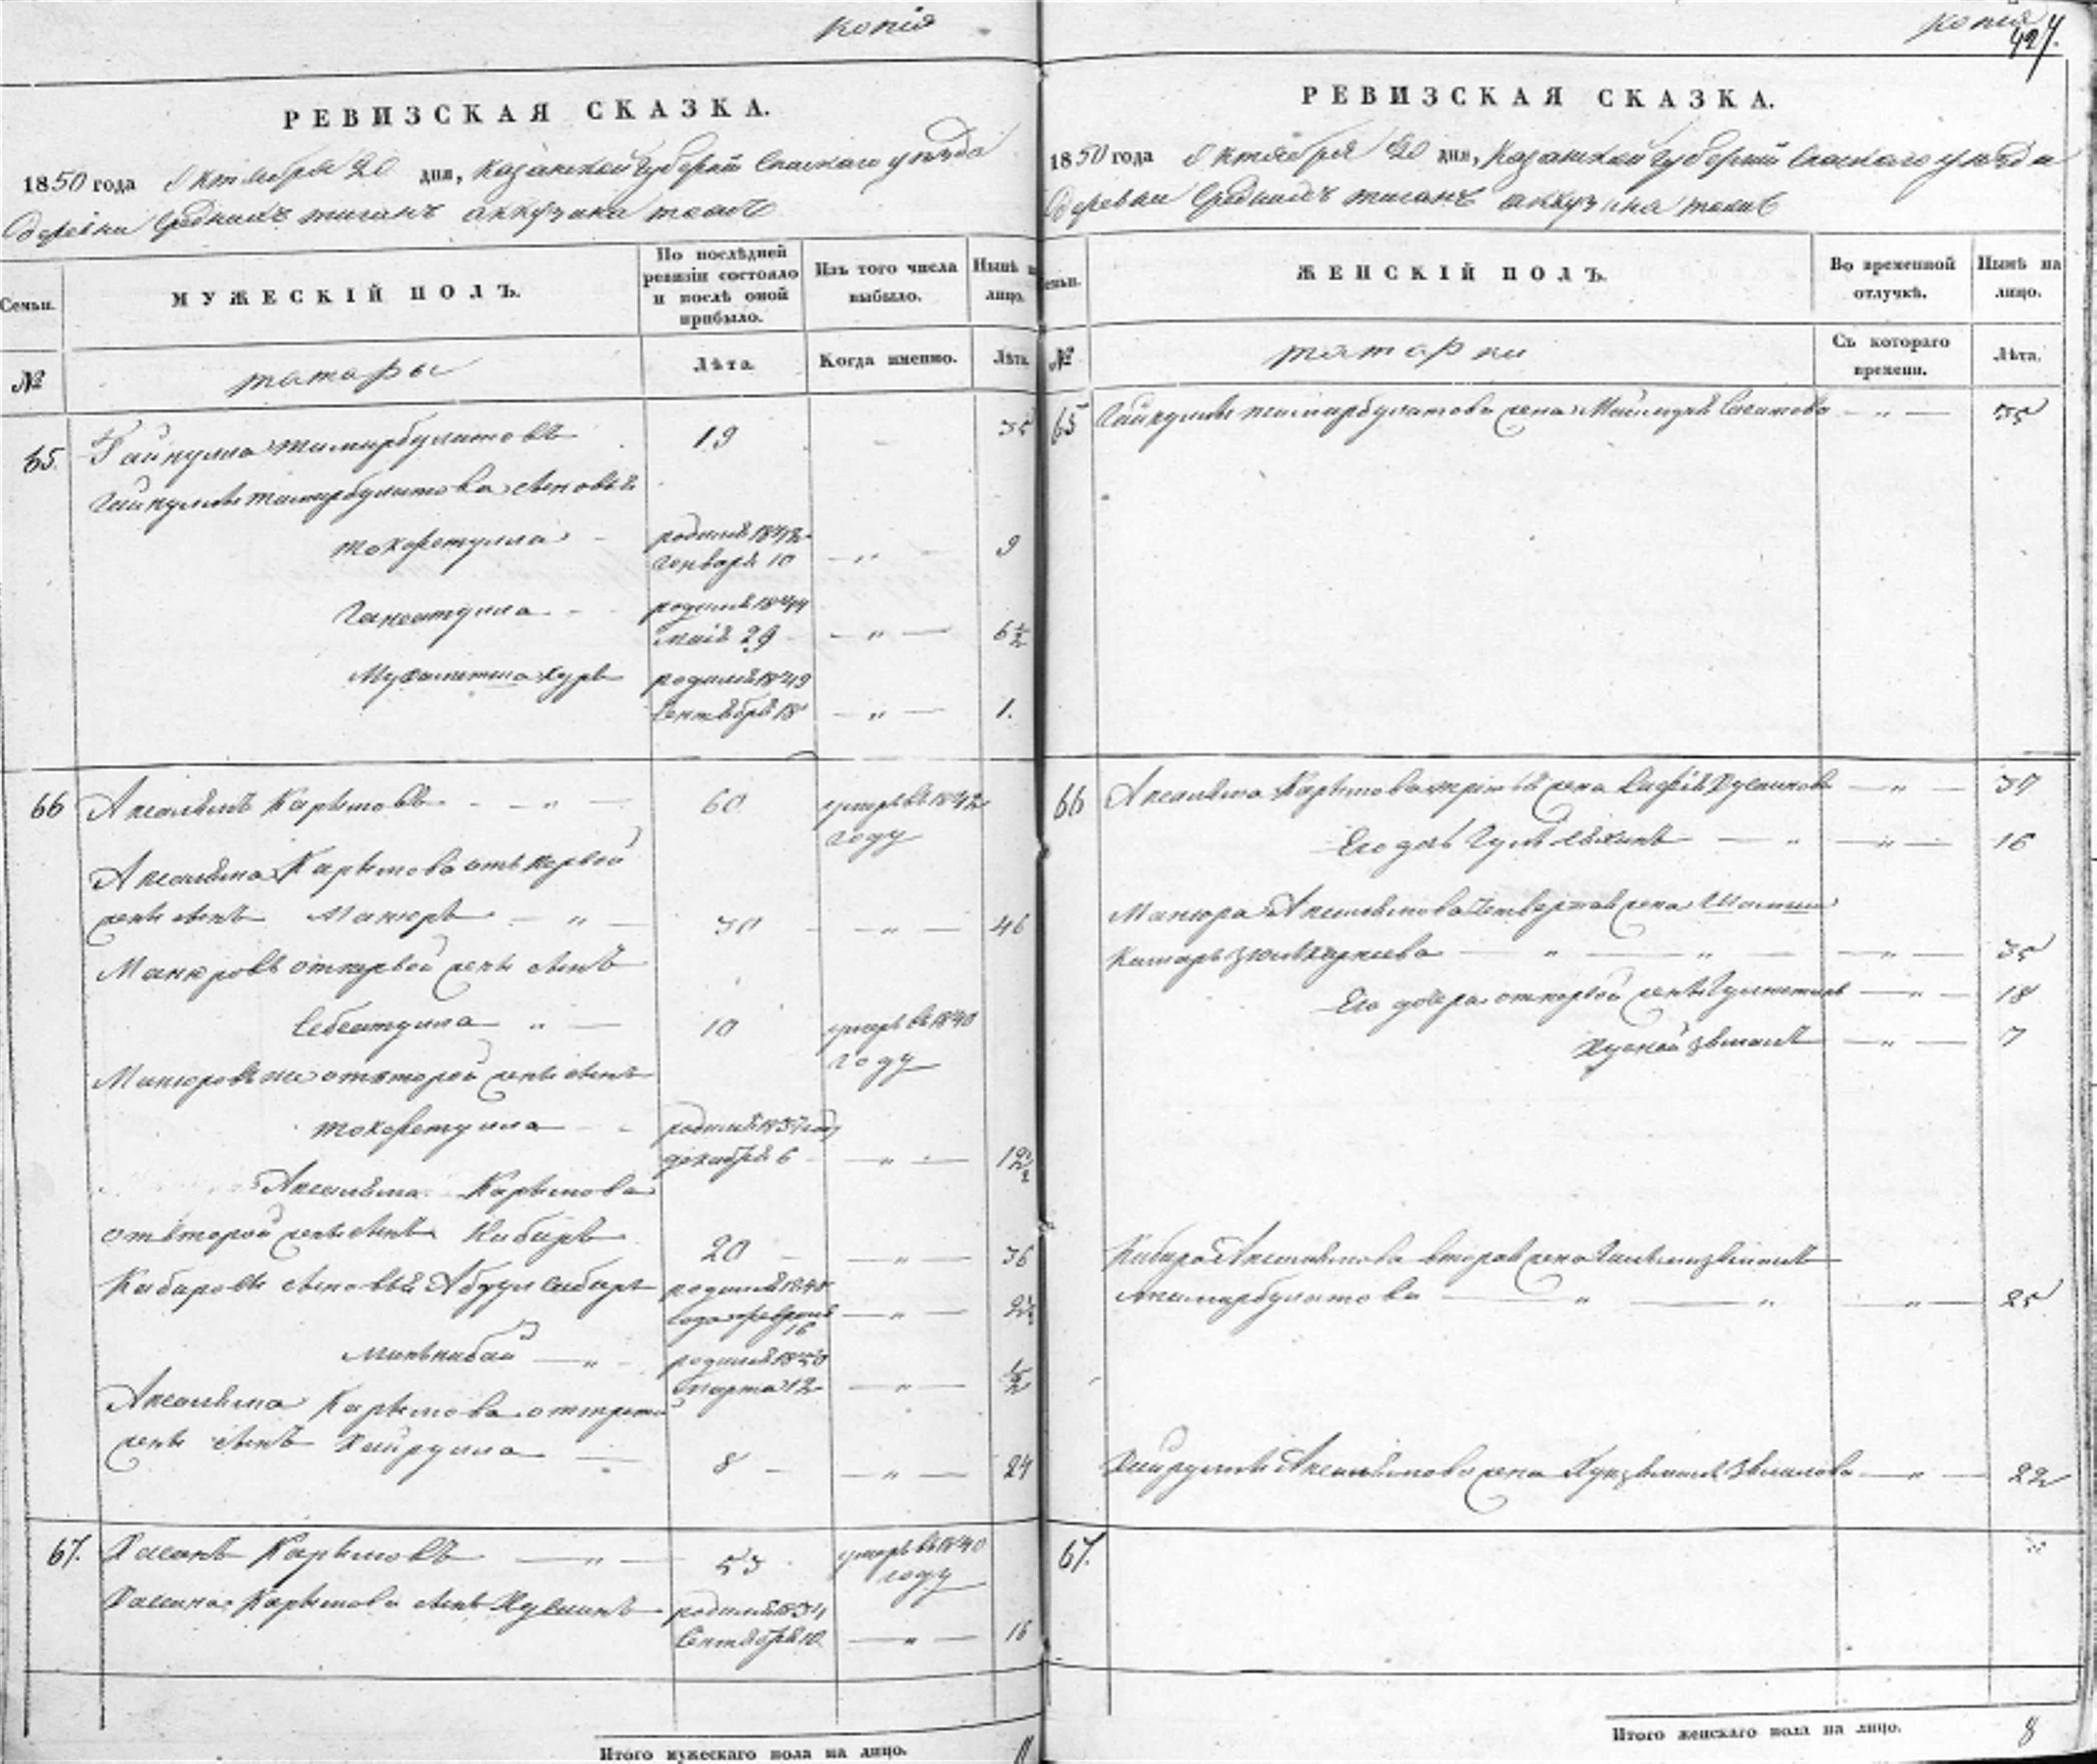 копія
РЕВИЗСКАЯ СКАЗКА.
1850 года Октября 20 дня, Казанской Губерніи Спаскаго уезда
деревни Средних тиганъ аккузина тожъ
Семьи.
МУЖЕСКІЙ ПОЛЪ.
По послѣдней ревизіи состояло и послѣ оной прибыло.
Изъ того числа выбыло.
Нынѣ на лицо.
№
татары
Лѣта
Когда именно.
Лѣта.
65. Гайнулла темирбулатовъ 19 35
Гайнуллы темирбулатова сыновья
тохфетулла родился 1842 Генваря 10 — „ — 9
Ганеатулла родился 1844 маія 29 — „ — 6 ½
Мухаметша родился 1849 Сентября 18 — „ — 1.
66 Апсалямъ Карымовъ — „ — 60 умеръ въ 1842 году
Апсаляма Карымова отъ первой
жены сынъ Манюръ — „ — 30 — „ — 46
Манюровъ от первой жены сынъ
Себеатулла „ — 10 умеръ въ 1840 году
Манюровъ же от второй жены сынъ
тохфетулла родился 1837 году декабря 6 — „ — 12 ½
Апсаляма Карымова
от второй жены сынъ Кабиръ 20 — „ — 36
Кабировы сыновья Абдулсабыръ родился 1848 года февраля 16 — „ — 2 ½
Миньлибай — „ — родился 1850 марта 12 — „ — ½
Апсаляма Карымова от третей
жены сынъ Хайрулла — 8 — — „ — 24
67. Хасанъ Карымовъ — „ — 53 умеръ въ 1840 году
Хасана Карымова сынъ Хусаинъ родился 1834 Сентября 10 — „ — 16
Итого мужескаго пола на лицо. 11
копія
427.
РЕВИЗСКАЯ СКАЗКА.
1850 года Октября 20 дня, Казанской Губерніи Спаскаго уезда
деревни Средних тиганъ аккузина тожъ
Семьи.
ЖЕНСКІЙ ПОЛЪ.
Во временной отлучкѣ.
Нынѣ на лицо.
№
татарки
Съ котораго времени.
Лѣта.
65 Гайнуллы темирбулатова жена Сагитова — „ — 35
66 Апсаляма Карымова третья жена Хусаинова — „ — 37
Его дочь — „ — „ — 16
Манюра Апсалямова четвертая жена
„ — „ — „ — 35
Его дочери от первой жены — „ — 18
— „ — 7
Кабира Апсалямова вторая жена
темирбулатова — „ — „ — „ — 25
Хайруллы Апсалямова жена — „ — 22
67.
Итого женскаго пола на лицо. 8